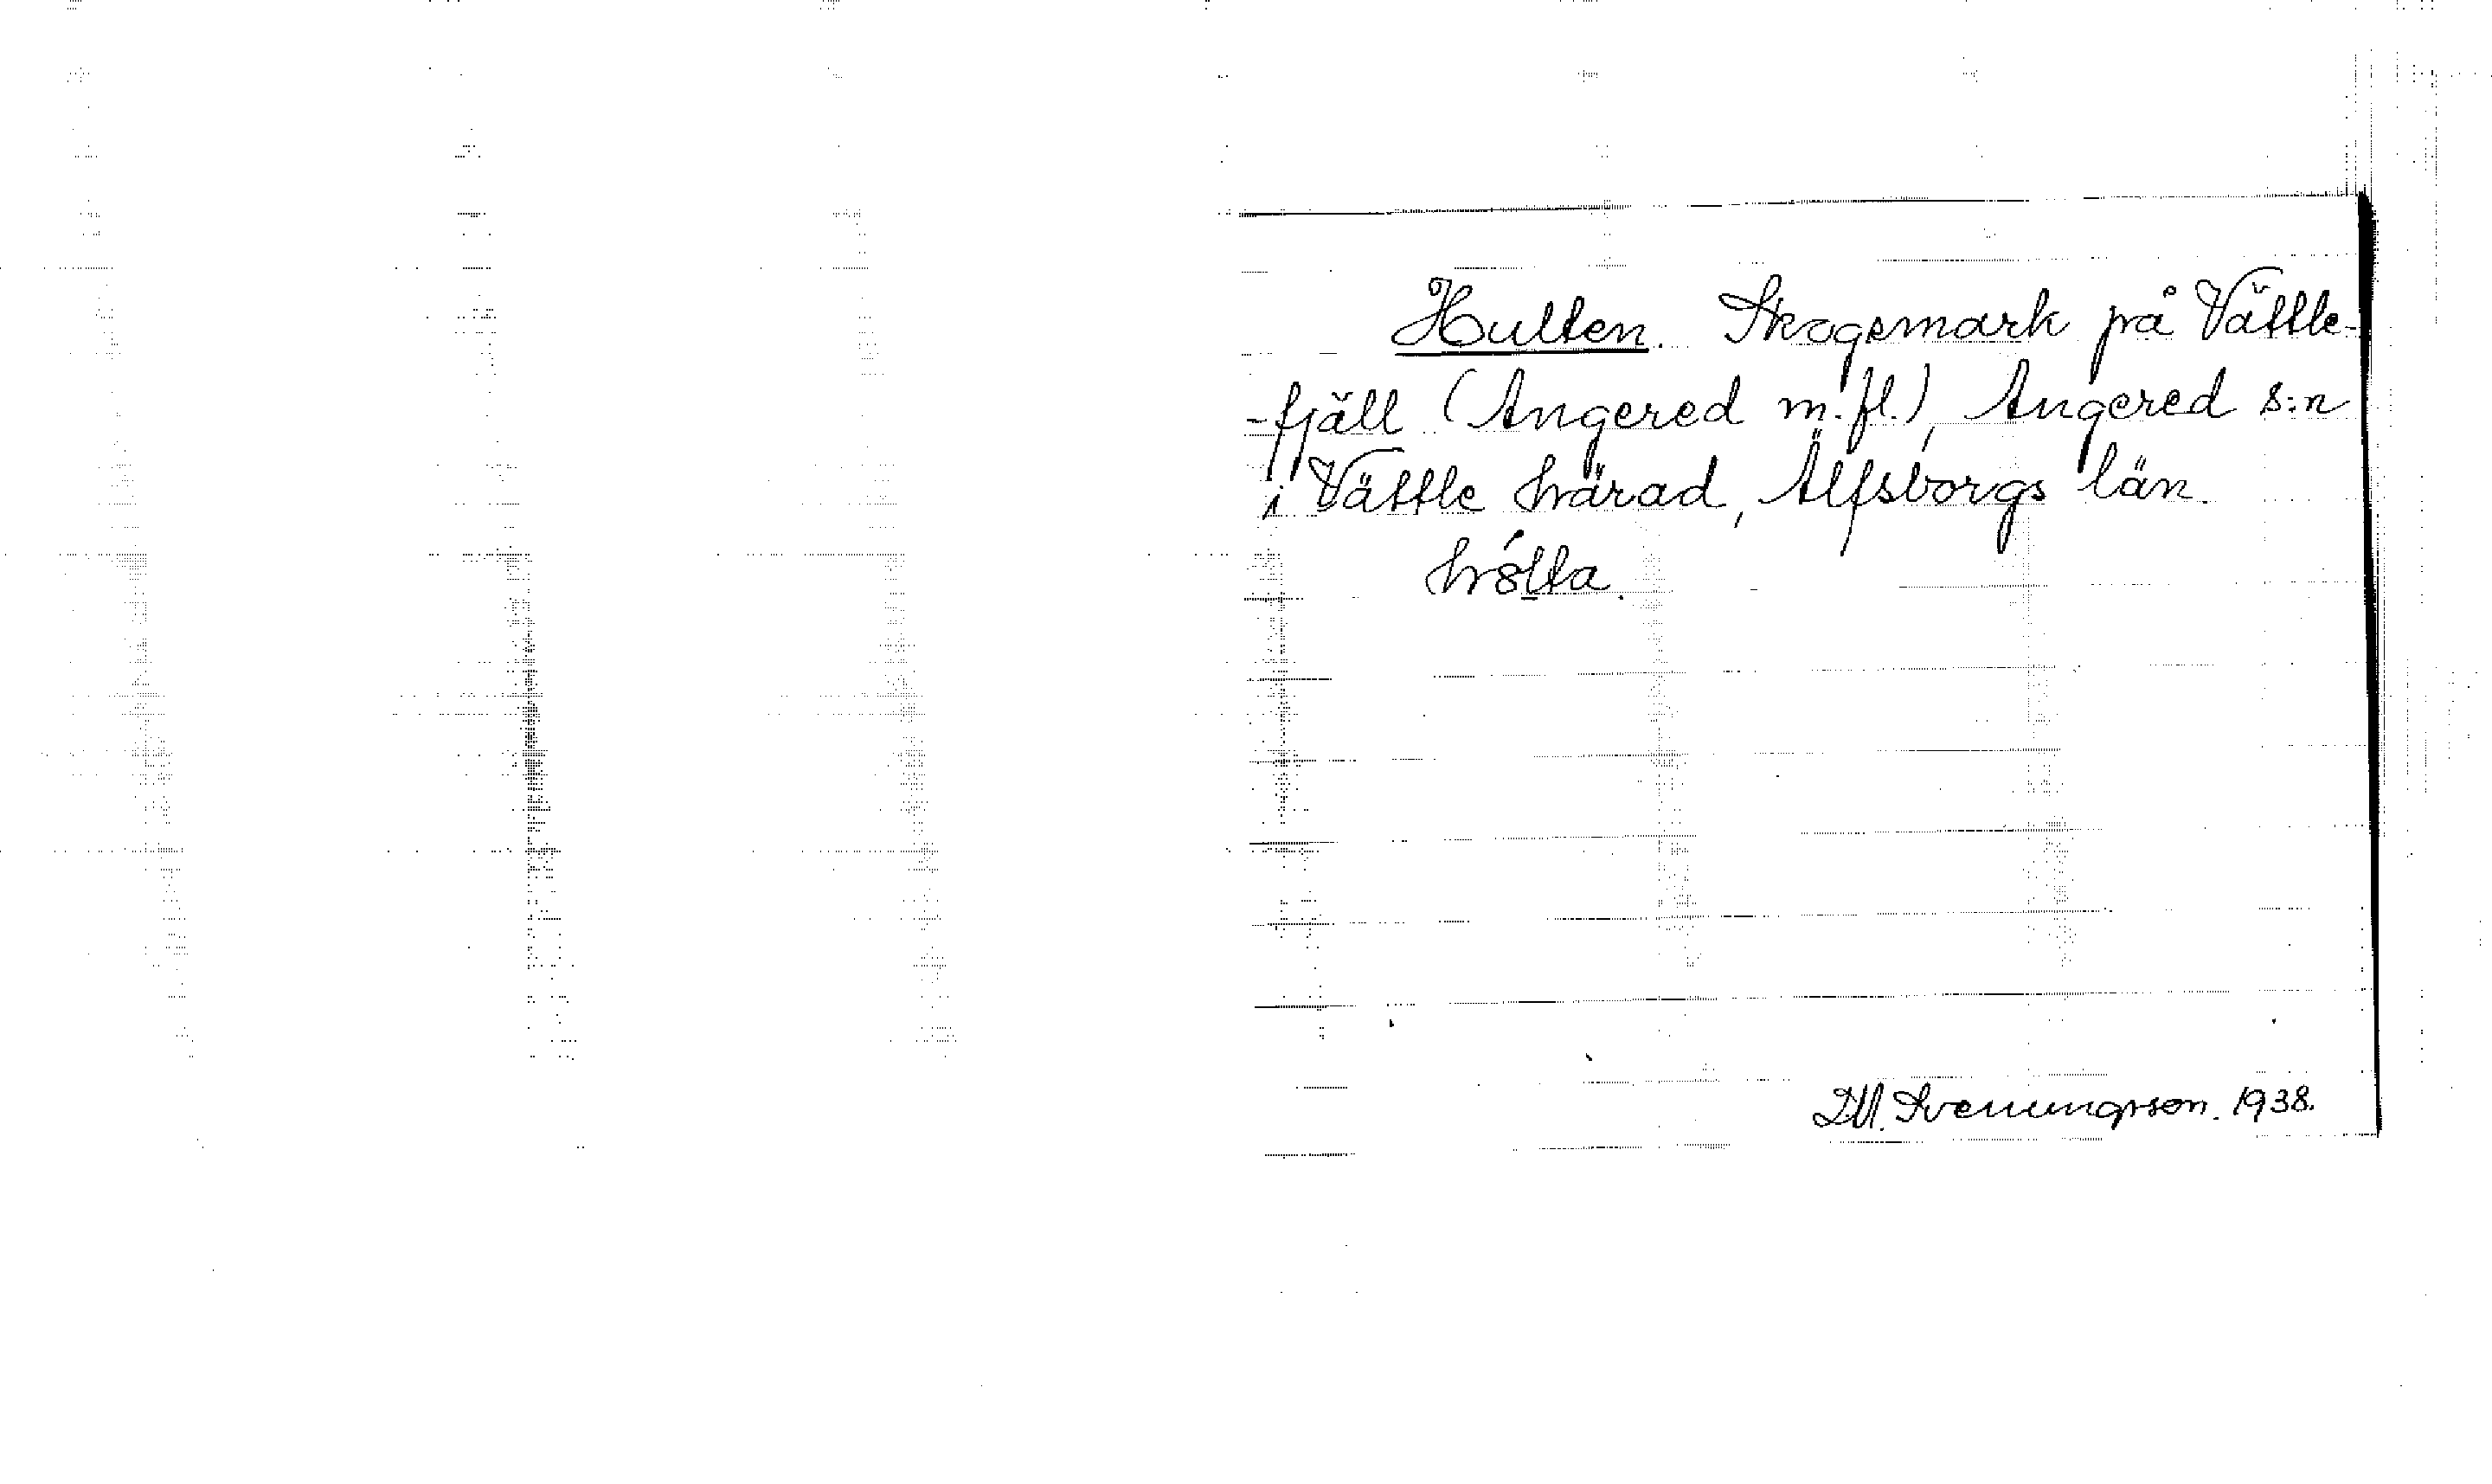 Hulten. Skogsmark på Vättle-
-fjäll (Angered m.fl.), Angered s:n
i Vättle härad, Älfsborgs län.
hólta.
D.M. Svenungsson. 1938.